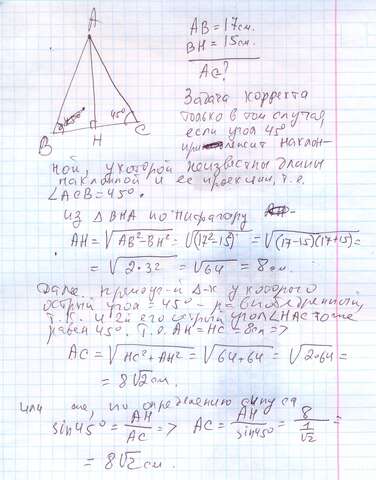 A
B
H
C
45°
AB = 17см.
BH = 15см.
AC?
Задача корректа
только в том случае,
если угол 45°
прилежит наклон-
ной, у которой неизвестны длины
наклонной и ее проекции, т.е.
∠ACB = 45°.
Из ΔBHA по Пифагору
AH = √(AB²-BH²) = √(17²-15²) = √((17-15)(17+15)) =
= √(2·32) = √64 = 8см.
Далее прямоуг-й Δ-к у которого
острый угол = 45° - р= бедренный,
т.к. и 2й его острый угол ∠HAC тоже
равен 45°. Т.о. AH = HC = 8см =>
AC = √(HC² + AH²) = √(64+64) = √(2·64) =
= 8√2 см.
или же, по определению синуса
sin45° = AH/AC => AC = AH/sin45° = 8/(1/√2) =
= 8√2 см.